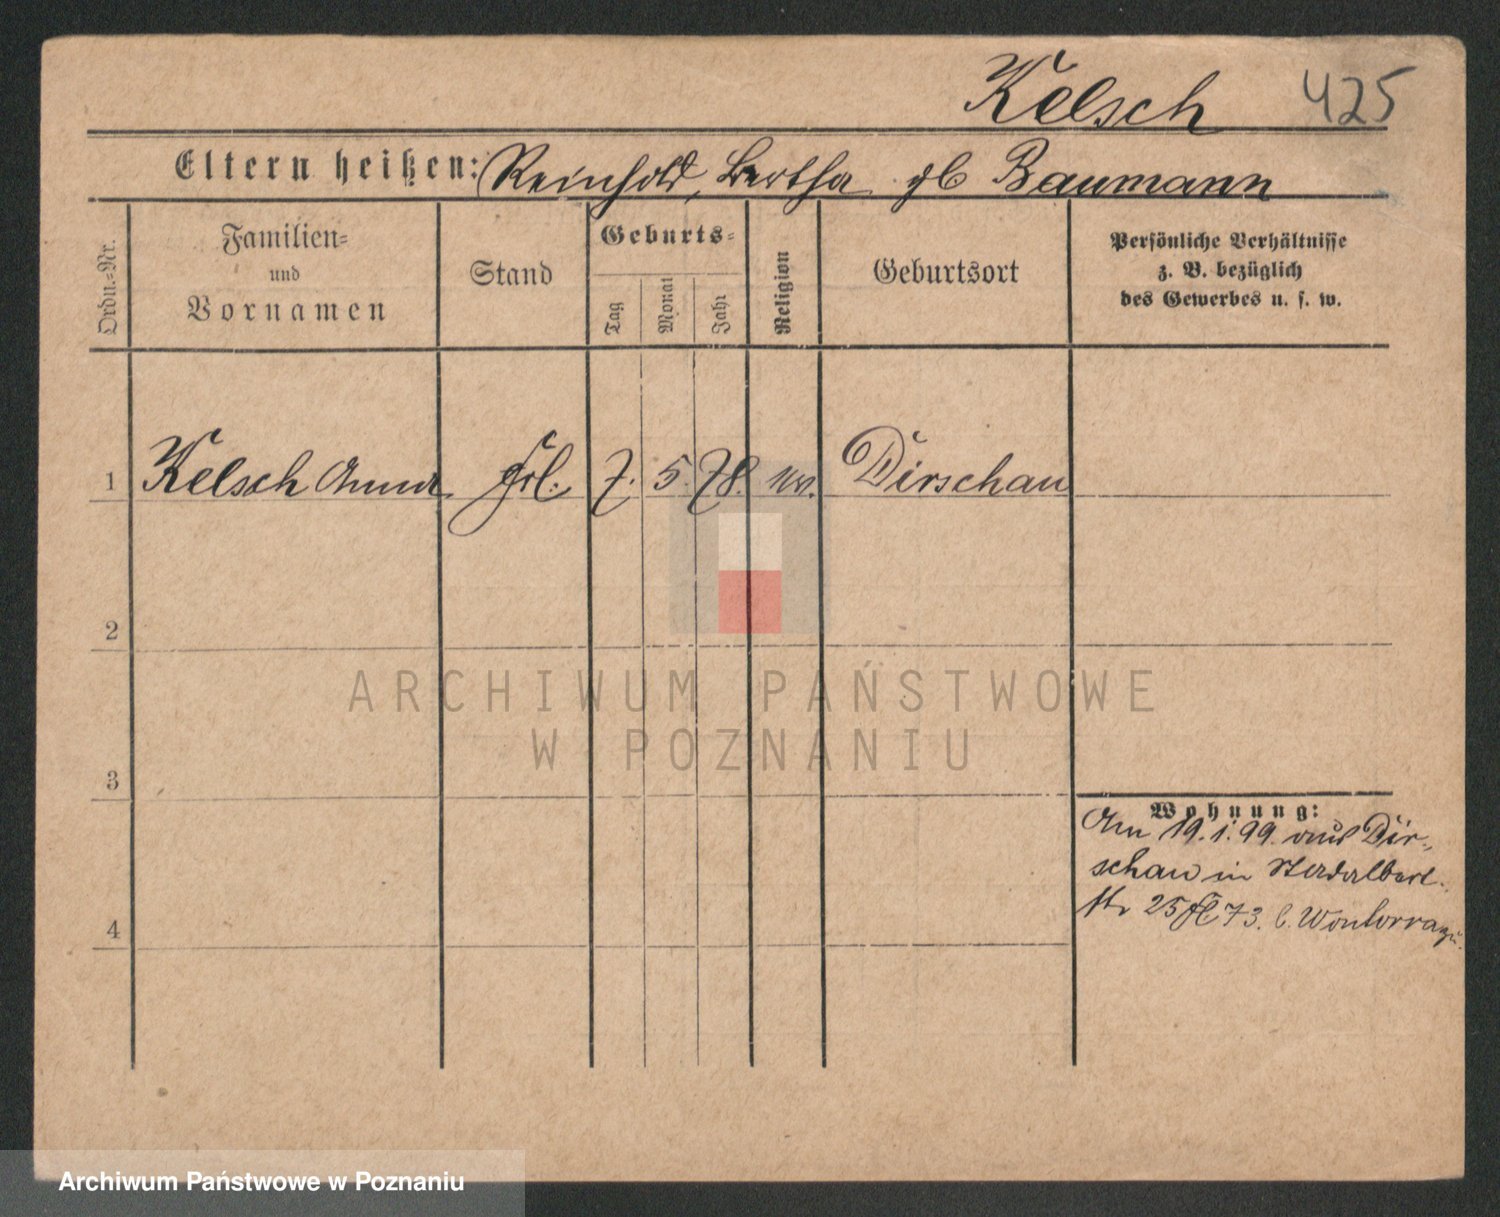 Kelsch 425
Eltern heißen: Reinhold, Bertha gb Baumann
Ordn.-Nr.
Familien-
und
Vornamen
Stand
Geburts-
Tag
Monat
Jahr
Religion
Geburtsort
Persönliche Verhältnisse
z. B. bezüglich
des Gewerbes u. s. w.
1 Kelsch Anna Frl. 7. 5. 78. ev. Dirschau
2
3
4
Wohnung:
Am 19.1.99. aus Dir-
schau in
str 25 73. b.
ARCHIWUM PAŃSTWOWE
W POZNANIU
Archiwum Państwowe w Poznaniu